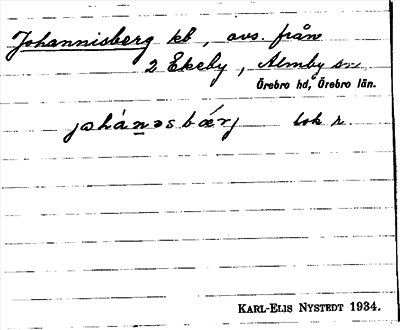 Johannisberg kb, avs. från
2 Ekeby, Almby sn
Örebro hd, Örebro län.
johánəsbǽrj bok r.
KARL-ELIS NYSTEDT 1934.